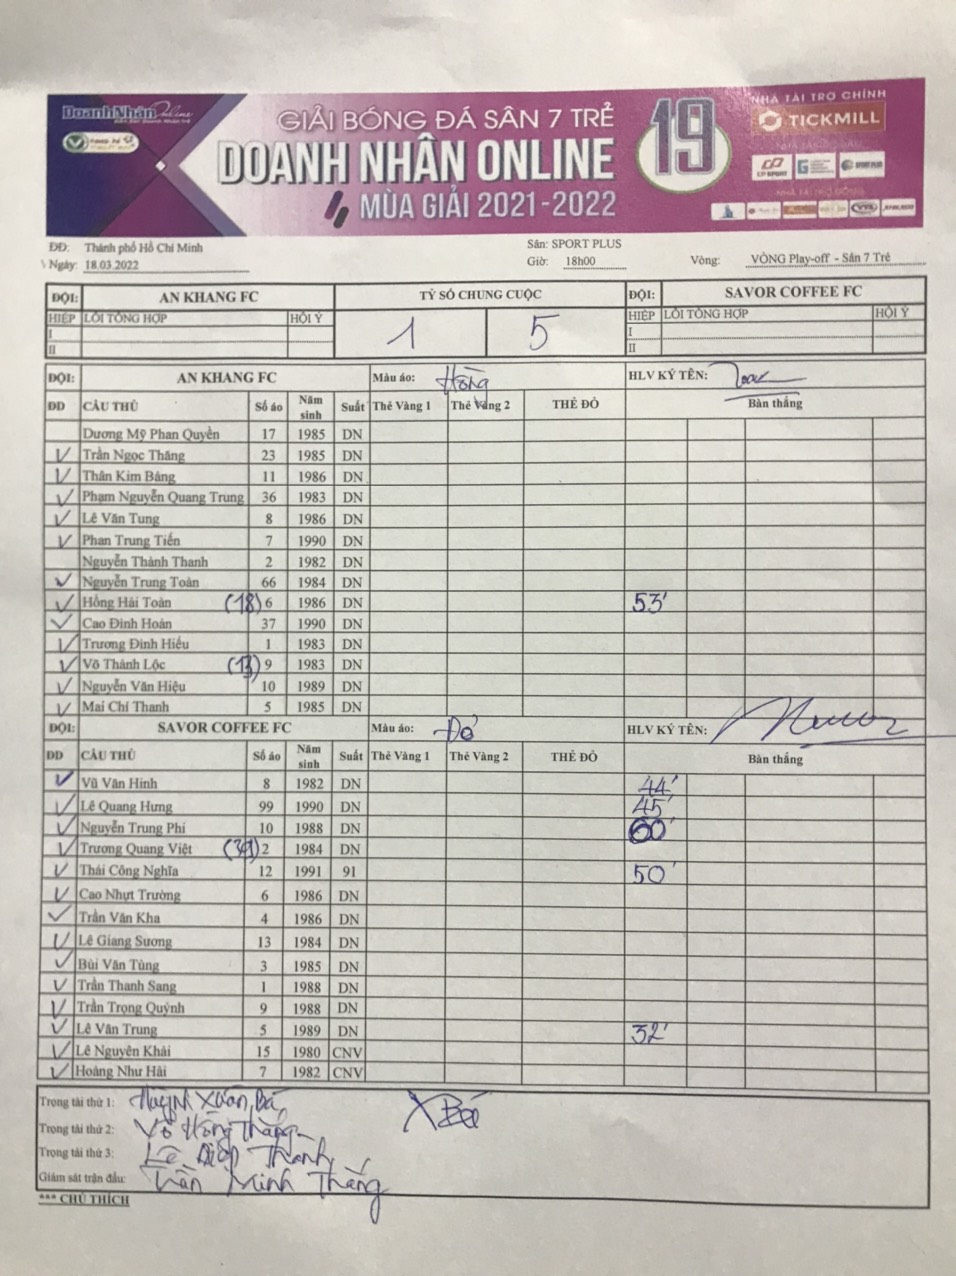 DoanhNhân Online
GIẢI BÓNG ĐÁ SÂN 7 TRẺ
DOANH NHÂN ONLINE
MÙA GIẢI 2021-2022
19
NHÀ TÀI TRỢ CHÍNH
TICKMILL
SPORT PLUS
ĐĐ: Thành phố Hồ Chí Minh Sân: SPORT PLUS
Ngày: 18.03.2022 Giờ: 18h00 Vòng: VÒNG Play-off - Sân 7 Trẻ
ĐỘI: AN KHANG FC TỶ SỐ CHUNG CUỘC ĐỘI: SAVOR COFFEE FC
HIỆP LỖI TỔNG HỢP HỘI Ý 1 5 HIỆP LỖI TỔNG HỢP HỘI Ý
I I
II II
ĐỘI: AN KHANG FC Màu áo: Hồng HLV KÝ TÊN:
DD CẦU THỦ Số áo Năm sinh Suất Thẻ Vàng 1 Thẻ Vàng 2 THẺ ĐỎ Bàn thắng
Dương Mỹ Phan Quyền 17 1985 DN
Trần Ngọc Thăng 23 1985 DN
Thân Kim Báng 11 1986 DN
Phạm Nguyễn Quang Trung 36 1983 DN
Lê Văn Tung 8 1986 DN
Phan Trung Tiến 7 1990 DN
Nguyễn Thành Thanh 2 1982 DN
Nguyễn Trung Toàn 66 1984 DN
Hồng Hải Toàn (18) 6 1986 DN 53'
Cao Đình Hoán 37 1990 DN
Trương Đình Hiếu 1 1983 DN
Võ Thành Lộc (13) 9 1983 DN
Nguyễn Văn Hiệu 10 1989 DN
Mai Chí Thanh 5 1985 DN
ĐỘI: SAVOR COFFEE FC Màu áo: Đỏ HLV KÝ TÊN:
DD CẦU THỦ Số áo Năm sinh Suất Thẻ Vàng 1 Thẻ Vàng 2 THẺ ĐỎ Bàn thắng
Vũ Văn Hinh 8 1982 DN 44'
Lê Quang Hưng 99 1990 DN 45'
Nguyễn Trung Phi 10 1988 DN 60'
Trương Quang Việt 2 1984 DN
Thái Công Nghĩa 12 1991 91 50'
Cao Nhựt Trường 6 1986 DN
Trần Văn Kha 4 1986 DN
Lê Giang Sương 13 1984 DN
Bùi Văn Tùng 3 1985 DN
Trần Thanh Sang 1 1988 DN
Trần Trọng Quýnh 9 1988 DN
Lê Văn Trung 5 1989 DN 32'
Lê Nguyên Khải 15 1980 CNV
Hoàng Như Hải 7 1982 CNV
Trọng tài thứ 1: Huỳnh Xuân Bá X Bá
Trọng tài thứ 2: Võ Hồng Thăng
Trọng tài thứ 3: Lê Diệp Thanh
Giám sát trận đấu: Trần Minh Thắng
*** CHÚ THÍCH